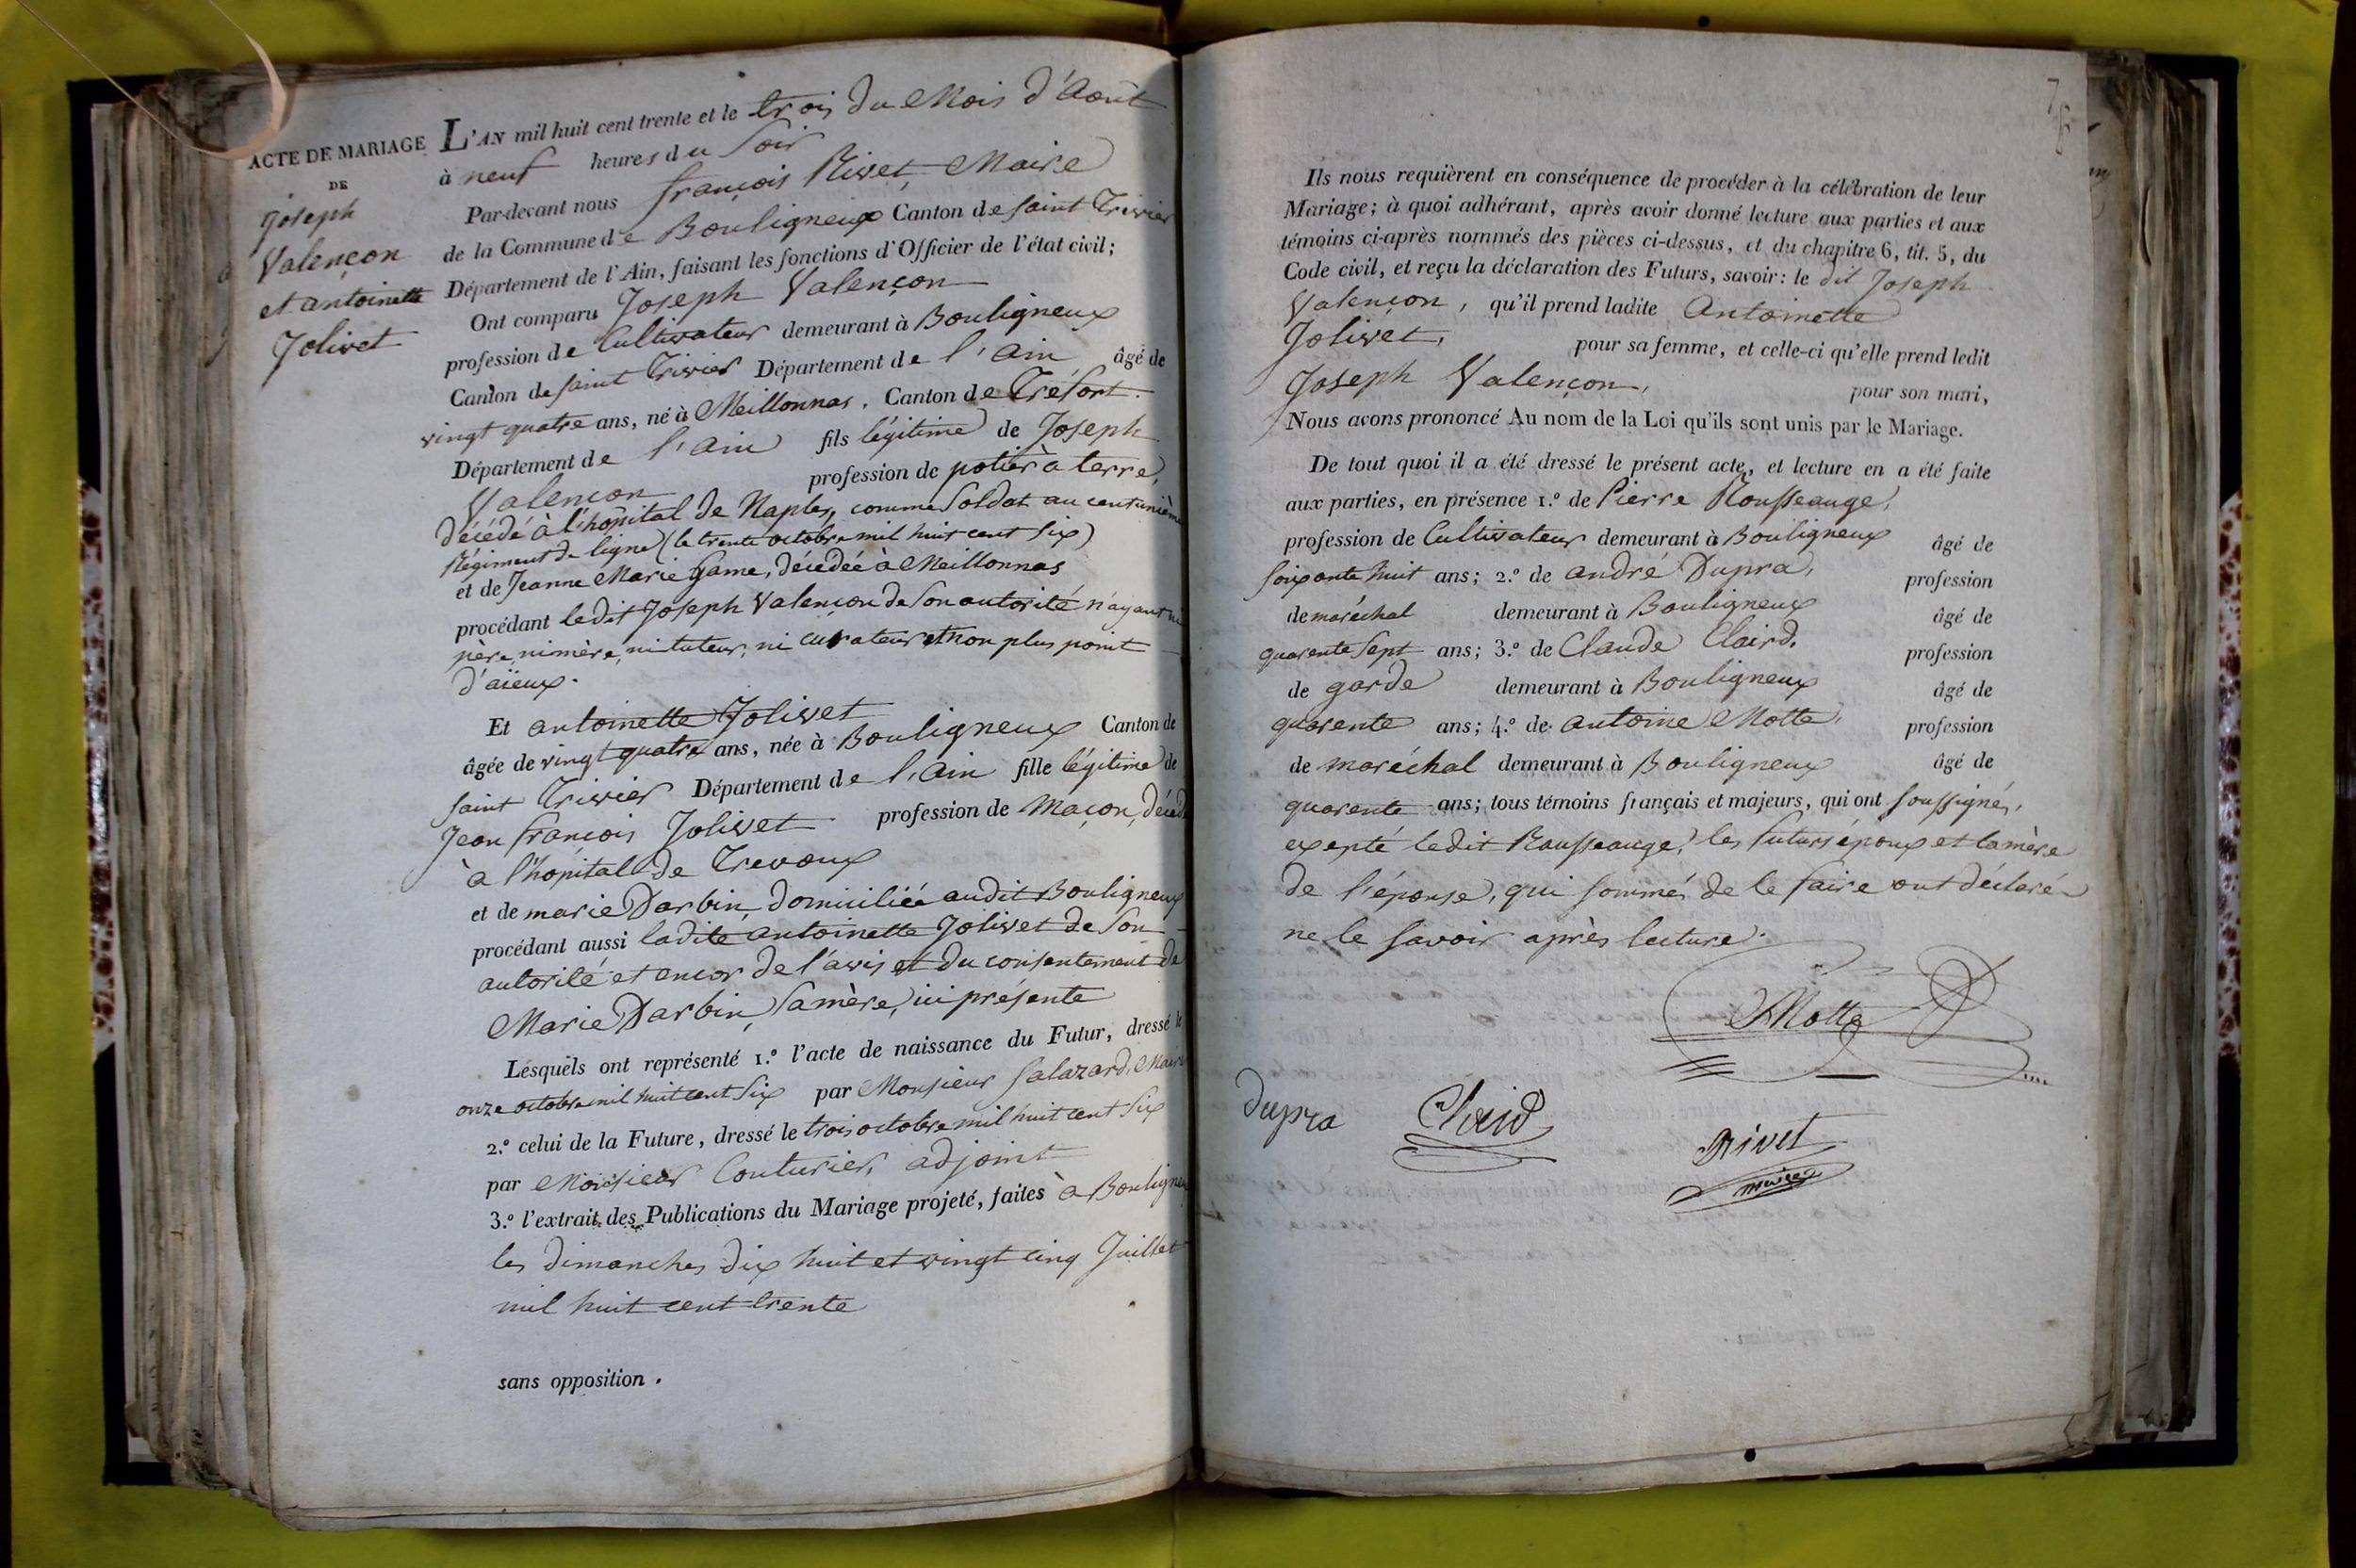 ACTE DE MARIAGE
DE
Joseph
Valençon
et antoinette
Jolivet
L'AN mil huit cent trente et le trois du Mois d'Août
à neuf heures du Soir
Par-devant nous françois Rivet, Maire
de la Commune de Bouligneux Canton de saint Trivier
Département de l'Ain, faisant les fonctions d'Officier de l'état civil;
Ont comparu Joseph Valençon
profession de Cultivateur demeurant à Bouligneux
Canton de saint Trivier Département de l'Ain âgé de
vingt quatre ans, né à Meillonnas, Canton de Tréfort.
Département de l'Ain fils légitime de Joseph
Valencon profession de potier à terre,
décédé à l'hôpital de Naples, comme Soldat au cent unième
Régiment de ligne (le trente octobre mil huit cent six)
et de Jeanne Marie Game, décédée à Meillonnas
procédant ledit Joseph Valençon de Son autorité n'ayant ni
père, ni mère, ni tuteur, ni curateur et non plus point
d'aïeux.
Et antoinette Jolivet
âgée de vingt quatre ans, née à Bouligneux Canton de
saint Trivier Département de l'Ain fille légitime de
Jean françois Jolivet profession de Maçon, décédé
à l'hôpital de Trevoux
et de marie Darbin, domiciliée audit Bouligneux
procédant aussi ladite antoinette Jolivet de Son
autorité et encor de l'avis et du consentement de
Marie Darbin, Sa mère, ici présente
Lesquels ont représenté 1.º l'acte de naissance du Futur, dressé le
onze octobre mil huit cent Six par Monsieur Salazard, Maire
2.º celui de la Future, dressé le trois octobre mil huit cent Six
par Monsieur Couturier, adjoint
3.º l'extrait des Publications du Mariage projeté, faites à Bouligneux
les dimanches dix huit et vingt cinq Juillet
mil huit cent trente
sans opposition.
Ils nous requièrent en conséquence de procéder à la célébration de leur
Mariage; à quoi adhérant, après avoir donné lecture aux parties et aux
témoins ci-après nommés des pièces ci-dessus, et du chapitre 6, tit. 5, du
Code civil, et reçu la déclaration des Futurs, savoir: le dit Joseph
Valençon, qu'il prend ladite Antoinette
Jolivet, pour sa femme, et celle-ci qu'elle prend ledit
Joseph Valençon, pour son mari,
Nous avons prononcé Au nom de la Loi qu'ils sont unis par le Mariage.
De tout quoi il a été dressé le présent acte, et lecture en a été faite
aux parties, en présence 1.º de Pierre Rousseauge,
profession de Cultivateur demeurant à Bouligneux âgé de
soixante huit ans; 2.º de andré Dupra, profession
de maréchal demeurant à Bouligneux âgé de
quarente Sept ans; 3.º de Claude Claird, profession
de garde demeurant à Bouligneux âgé de
quarente ans; 4.º de antoine Motte, profession
de maréchal demeurant à Bouligneux âgé de
quarente ans; tous témoins français et majeurs, qui ont soussignés,
exepté ledit Rousseauge, les futurs époux et la mère
de l'épouse, qui sommés de le faire ont déclaré
ne le savoir après lecture.
Motte
Dupra Claird
Rivet
maire